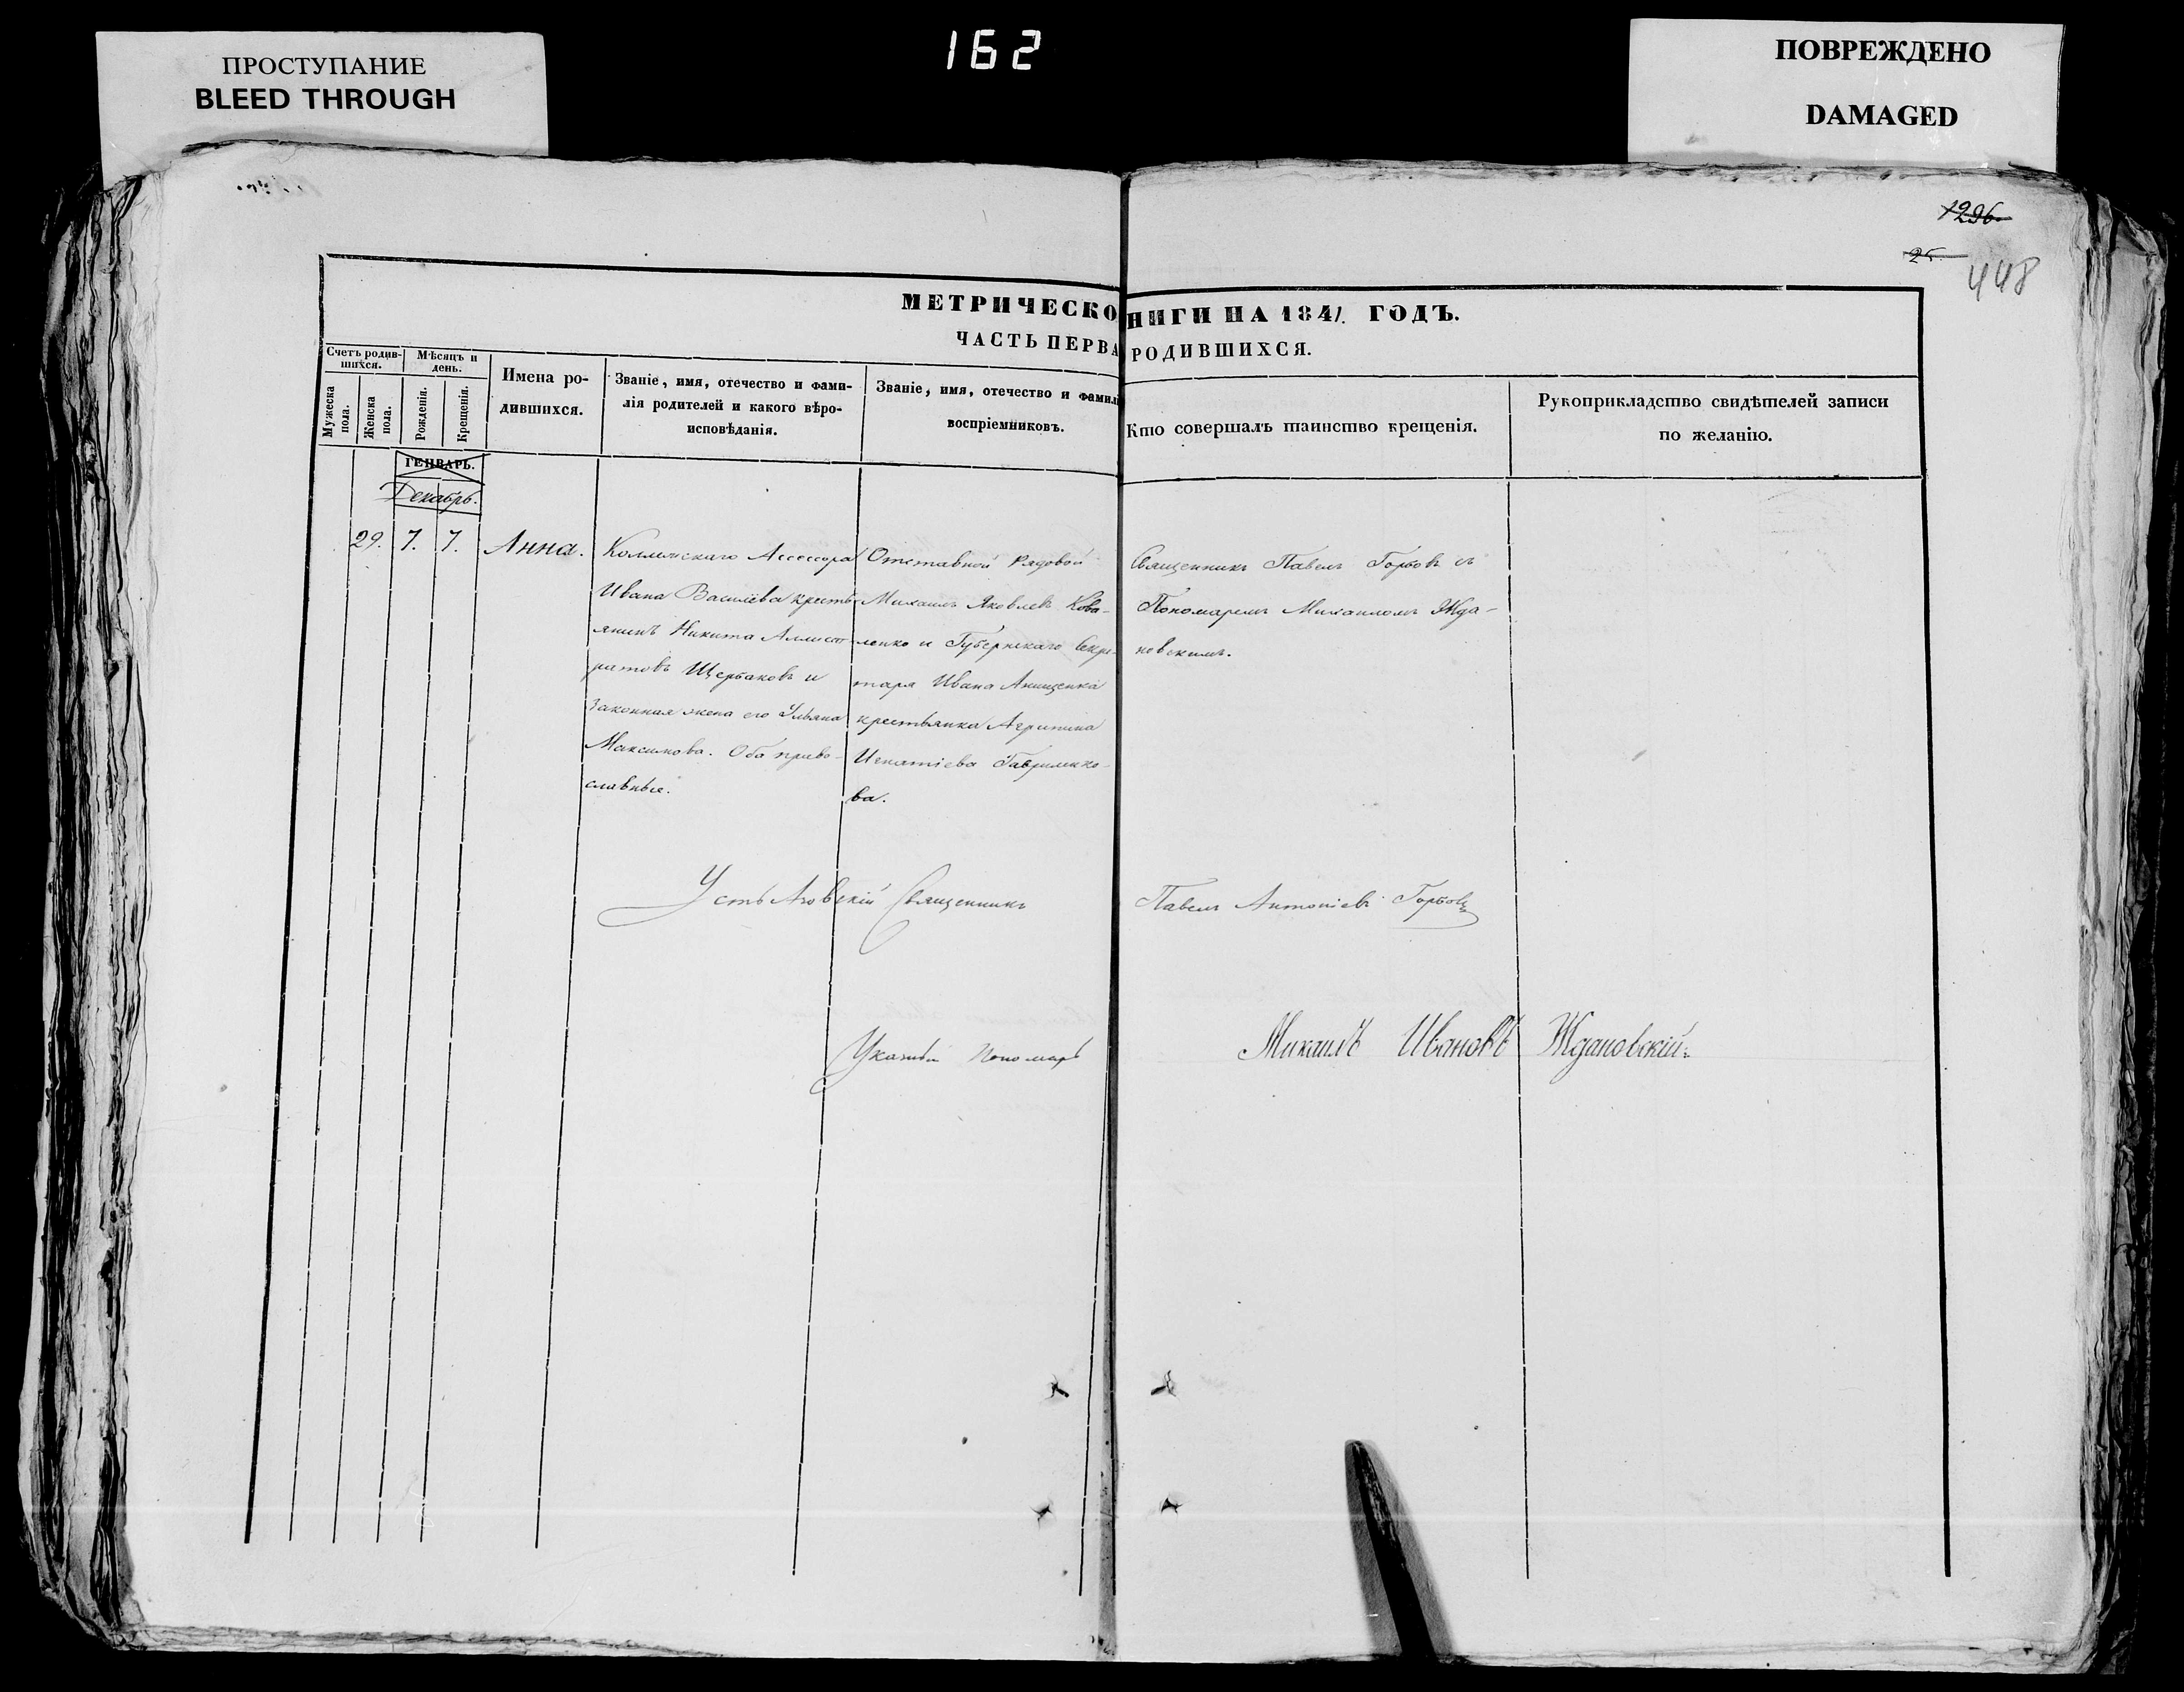 162
ПРОСТУПАНИЕ
BLEED THROUGH
ПОВРЕЖДЕНО
DAMAGED
1296.
25.
448
МЕТРИЧЕСКО НИГИ НА 1841. ГОДЪ.
ЧАСТЬ ПЕРВА РОДИВШИХСЯ.
Счетъ родив-
шихся.
Мужеска
пола.
Женска
пола.
Мѣсяцъ и
день.
Рожденія.
Крещенія.
Имена ро-
дившихся.
Званіе, имя, отечество и фами-
лія родителей и какого вѣро-
исповѣданія.
Званіе, имя, отечество и фамил
воспріемниковъ.
Кто совершалъ таинство крещенія.
Рукоприкладство свидѣтелей записи
по желанію.
ГЕНВАРЬ.
Декабрь.
29. 7. 7. Анна.
Ассессора
Ивана Василева кресть-
янинъ Никита
Щербаковъ и
Законная жена его Ульяна
Максимова. Оба право-
славные.
Отставной Рядовой
Михаилъ Яковлевъ Кова-
ленко и Губернскаго Секре-
таря Ивана Анищенка
крестьянка Агрипина
Игнатіева Гавриленко-
ва.
Священникъ Павелъ Горбовъ съ
Пономаремъ Михаиломъ Жда-
новскимъ.
Священникъ Павелъ Антоніевъ Горбовъ
Указный пономарь Михаилъ Ивановъ Ждановскій: